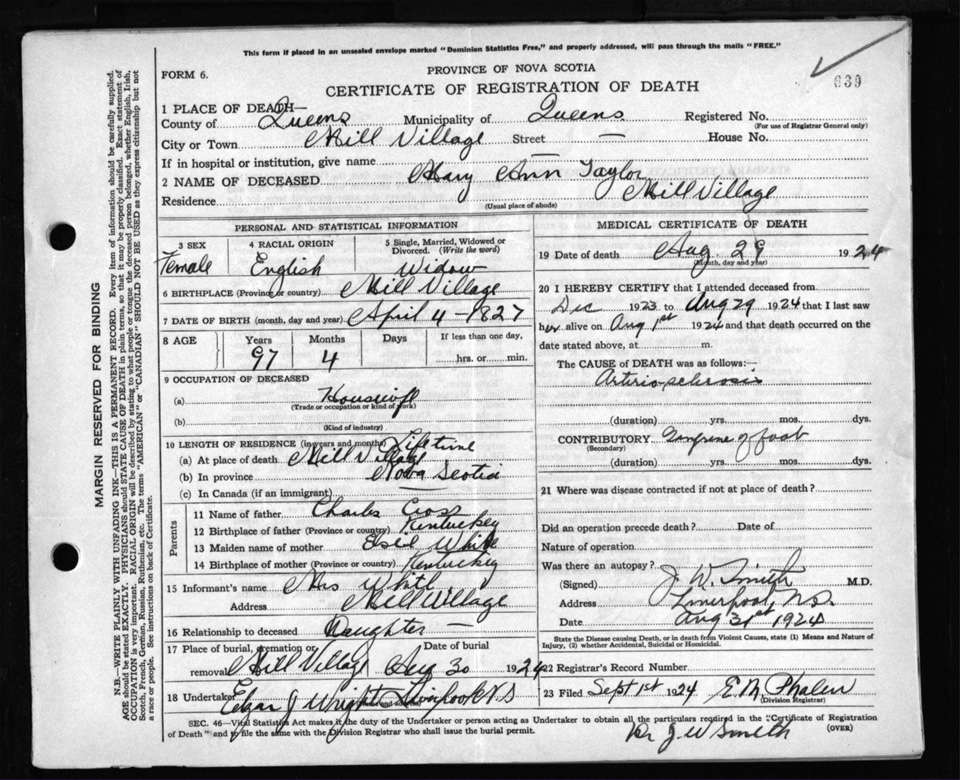 This form if placed in an unsealed envelope marked "Dominion Statistics Free," and properly addressed, will pass through the mails "FREE."
639
FORM 6.
PROVINCE OF NOVA SCOTIA
CERTIFICATE OF REGISTRATION OF DEATH
1 PLACE OF DEATH—
County of Queens Municipality of Queens Registered No.
(For use of Registrar General only)
City or Town Mill Village Street — House No.
If in hospital or institution, give name —
2 NAME OF DECEASED Mary Ann Taylor
Residence Mill Village
(Usual place of abode)
PERSONAL AND STATISTICAL INFORMATION
3 SEX 4 RACIAL ORIGIN 5 Single, Married, Widowed or Divorced. (Write the word)
Female English Widow
6 BIRTHPLACE (Province or country) Mill Village
7 DATE OF BIRTH (month, day and year) April 4 - 1827
8 AGE Years Months Days If less than one day,
97 4 hrs. or min.
9 OCCUPATION OF DECEASED
(a) Housewife
(Trade or occupation or kind of work)
(b)
(Kind of industry)
10 LENGTH OF RESIDENCE (in years and months) Lifetime
(a) At place of death Mill Village
(b) In province Nova Scotia
(c) In Canada (if an immigrant)
Parents
11 Name of father Charles Cross
12 Birthplace of father (Province or country) Kentuckey
13 Maiden name of mother White
14 Birthplace of mother (Province or country) Kentuckey
15 Informant's name Mrs White
Address Mill Village
16 Relationship to deceased Daughter —
17 Place of burial, cremation or removal Mill Village Date of burial Aug 30 1924
18 Undertaker Edgar J Wright Liverpool N.S
SEC. 46—Vital Statistics Act makes it the duty of the Undertaker or person acting as Undertaker to obtain all the particulars required in the "Certificate of Registration
of Death" and to file the same with the Division Registrar who shall issue the burial permit.
(OVER)
MEDICAL CERTIFICATE OF DEATH
19 Date of death Aug 29 1924
(Month, day and year)
20 I HEREBY CERTIFY that I attended deceased from
Dec 1923 to Aug 29 1924 that I last saw
her alive on Aug 1st 1924 and that death occurred on the
date stated above, at m.
The CAUSE OF DEATH was as follows:—
Arterio-sclerosis
(duration) yrs. mos. dys.
CONTRIBUTORY Gangrene of foot
(Secondary)
(duration) yrs. mos. dys.
21 Where was disease contracted if not at place of death?
Did an operation precede death? Date of
Nature of operation
Was there an autopsy?
(Signed) J. W. Smith M.D.
Address Liverpool, N.S.
Date Aug 31st 1924
State the Disease causing Death, or in death from Violent Causes, state (1) Means and Nature of
Injury, (2) whether Accidental, Suicidal or Homicidal.
22 Registrar's Record Number
23 Filed Sept 1st 1924 E. M. Phalen
(Division Registrar)
Dr J W Smith
MARGIN RESERVED FOR BINDING
N.B.—WRITE PLAINLY WITH UNFADING INK—THIS IS A PERMANENT RECORD. Every item of information should be carefully supplied.
AGE should be stated EXACTLY. PHYSICIANS should STATE CAUSE OF DEATH in plain terms, so that it may be properly classified. Exact statement of
OCCUPATION is very important. RACIAL ORIGIN will be described by stating to what people or tongue the deceased person belonged, whether English, Irish,
Scotch, French, German, Russian, Ruthenian, etc. The terms "AMERICAN" or "CANADIAN" SHOULD NOT BE USED as they express citizenship but not
a race or people. See instructions on back of Certificate.